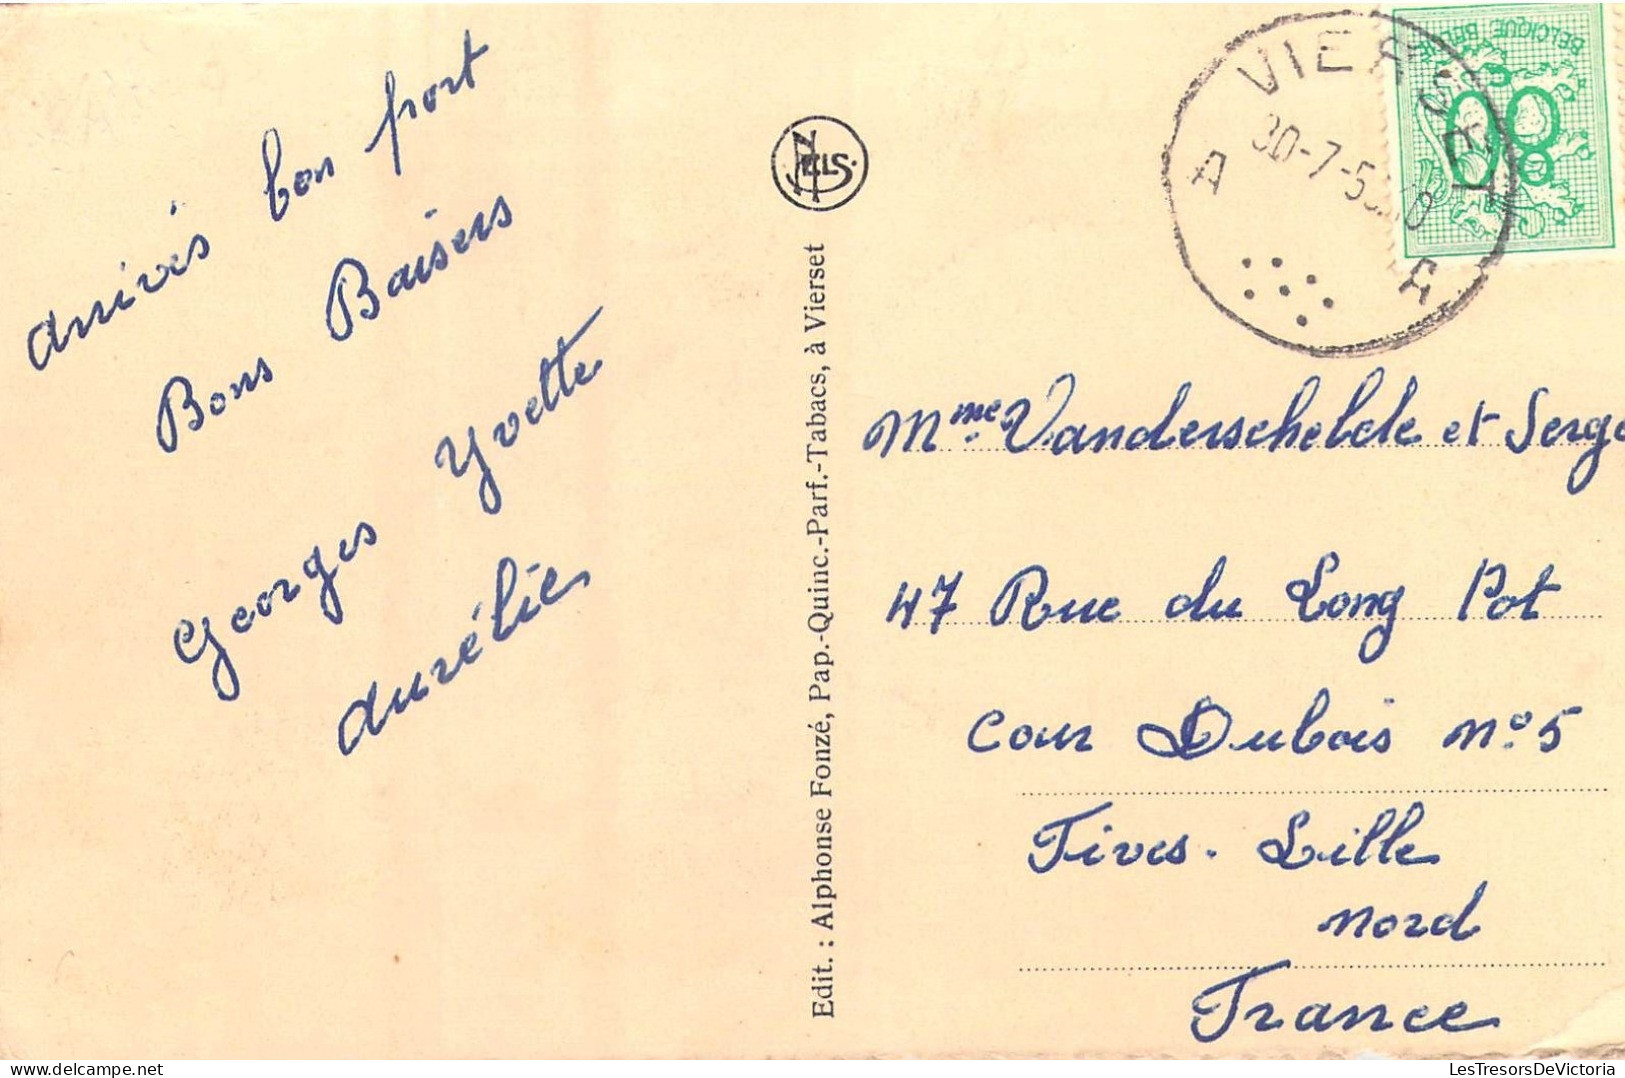 arrivés bon port
Bons Baisers
Georges Yvette
Aurélie
NELS.
Edit. : Alphonse Fonzé, Pap.-Quinc.-Parf.-Tabacs, à Vierset
VIERSET
A 30-7-5
A
BELGIQUE BELGIE
80
Mme Vanderschelde et Serge
47 Rue du Long Pot
Cour Dubois n° 5
Fives-Lille
Nord
France
LesTresorsDeVictoria